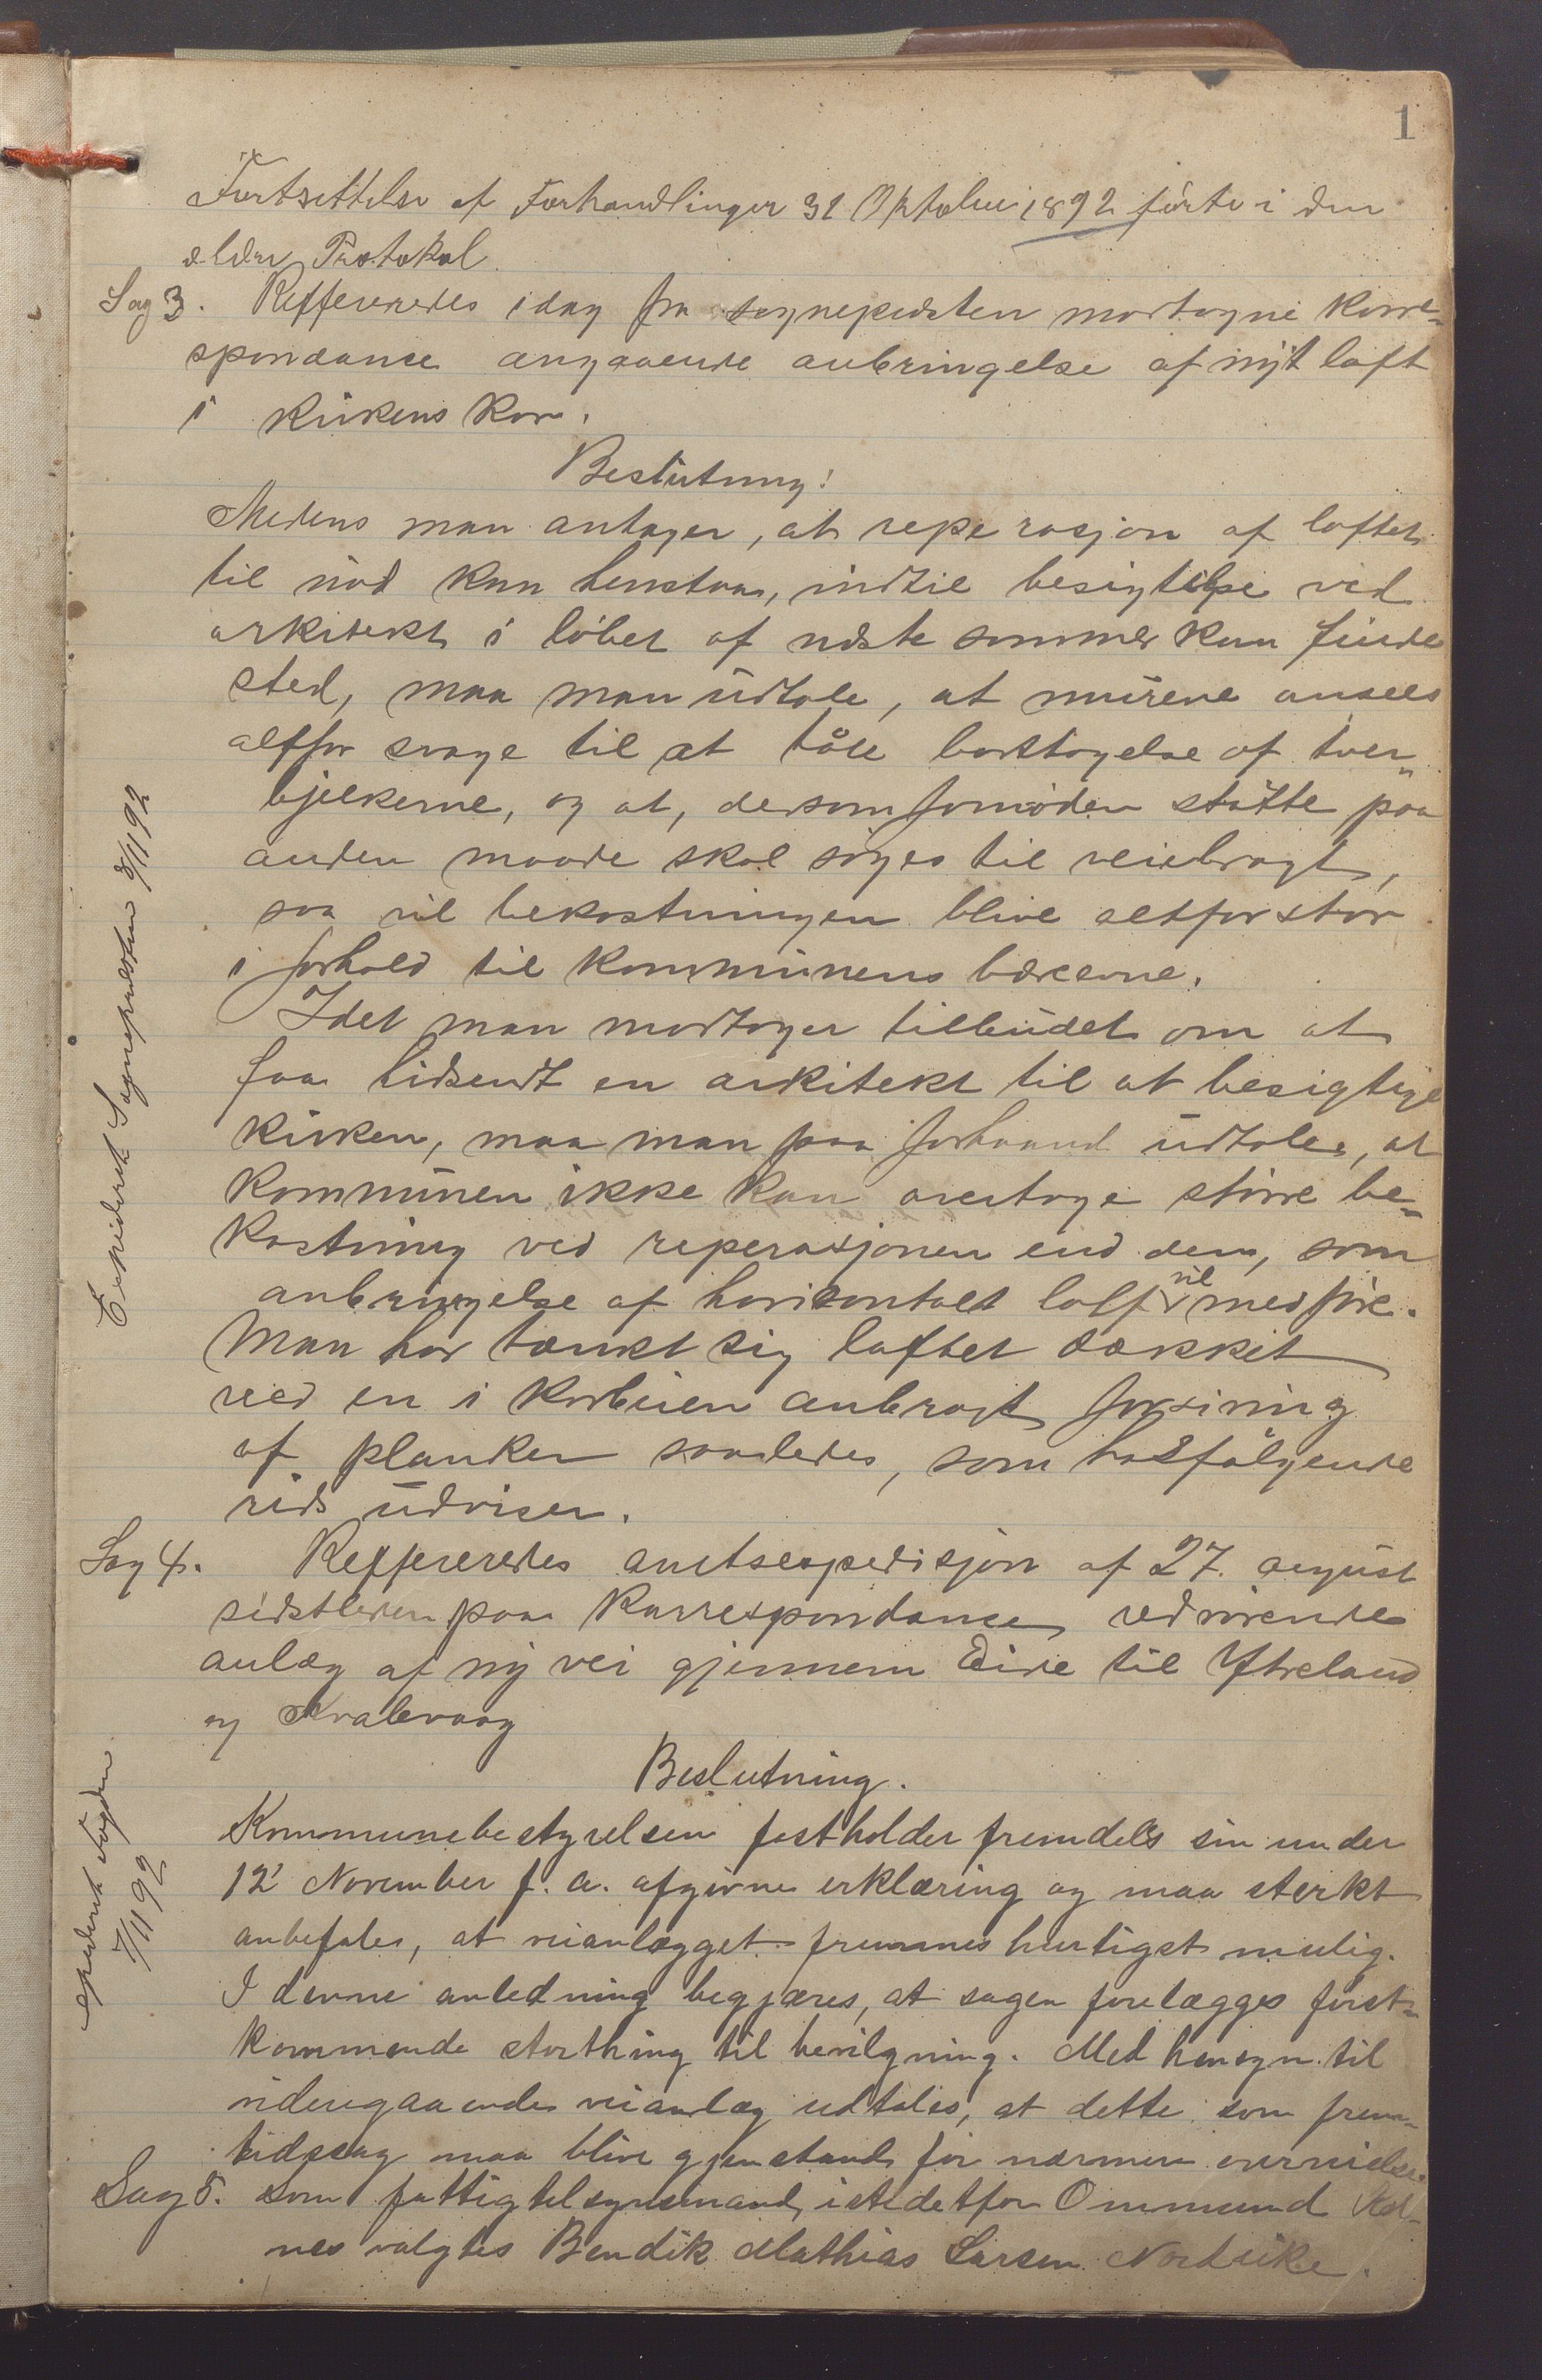 1
Fortsettelse af Forhandlinger 31 Oktober 1892 førte i den
eldre Protokol.
Sag 3. Reffereredes idag fra sognepresten mottagne korre-
spondance angaaende anbringelse af nyt loft
i kirkens kor.
Beslutning!
Medens man antager, at reperasjon af loftet
til nød kan henstaa, indtil besigtelse ved
arkitekt i løbet af neste sommer kan finde
sted, maa man udtale, at murene ansees
altfor svage til at tåle borttagelse af tver-
bjelkerne, og at, dersom fornøden støtte paa
anden maade skal søges til veiebragt,
saa vil bekostningen blive altfor stor
i forhold til kommunens bæreevne.
Idet man modtager tilbudet om at
faa hidsendt en arkitekt til at besigtige
kirken, maa man paa forhaand udtale, at
kommunen ikke kan overtage større be-
kostning ved reperasjonen end den, som
anbringelse af horisontalt loft vil medføre.
Man har tænkt sig loftet dækket
ved en i korbuen anbragt forsiring
af planker saaledes, som hosfølgende
rids udviser.
Expederet Sognepresten 8/11 92
Sag 4. Reffereredes amtsexpedisjon af 27. august
sidstleden paa korrespondance vedrørende
anlæg af ny vei gjennem Eide til Ytreland
og Kvalevaag
Beslutning.
Kommunebestyrelsen fastholder fremdeles sin under
12 November f. a. afgivne erklæring og maa sterkt
anbefales, at veianlægget fremmes hurtigst mulig.
I denne anledning begjæres, at sagen forelægges først-
kommende storthing til bevilgning. Med hensyn til
videregaaende veianlæg udtales, at dette som frem-
tidssag maa blive gjenstand for nærmere overveielse.
expederet Fogden
7/11 92
Sag 5. Som fattigtilsynsmand, istedetfor Ommund
nes valgtes Bendik Mathias Larsen Nordvike.